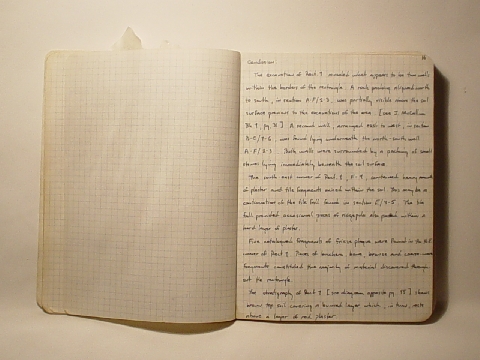 16
Conclusion
The excavation of Rect 9 revealed what appears to be two walls
within the borders of the rectangle. A rock packing aligned north
to south, in section A-F/2-3, was partially visible above the soil
surface previous to the excavation of the area. [see I McLellan
Bk 9, pg. 31] A second wall, arranged east to west, in section
A-E/4-6 was found lying underneath the north-south wall
A-F/2-3. Both walls were surrounded by a packing of small
stones lying immediately beneath the soil surface.
The north east corner of Rect. 9, F-9, contained heavy amounts
of plaster and tile fragments mixed within the soil. This may be a
continuation of the tile fall found in section E/3-5. The tile
fall provided occasional pieces of within a
burnt layer of plaster.
Five catalogued fragments of frieze plaque were found in the N.E
corner of Rect 9. Pieces of bucchero, bone, bronze and coarse ware
fragments constituted the majority of material discovered through-
out the rectangle.
The stratigraphy of Rect 9 [see diagram opposite pg. 15] shows
brown top-soil covering a burned layer which, in turn, rests
above a layer of red plaster.